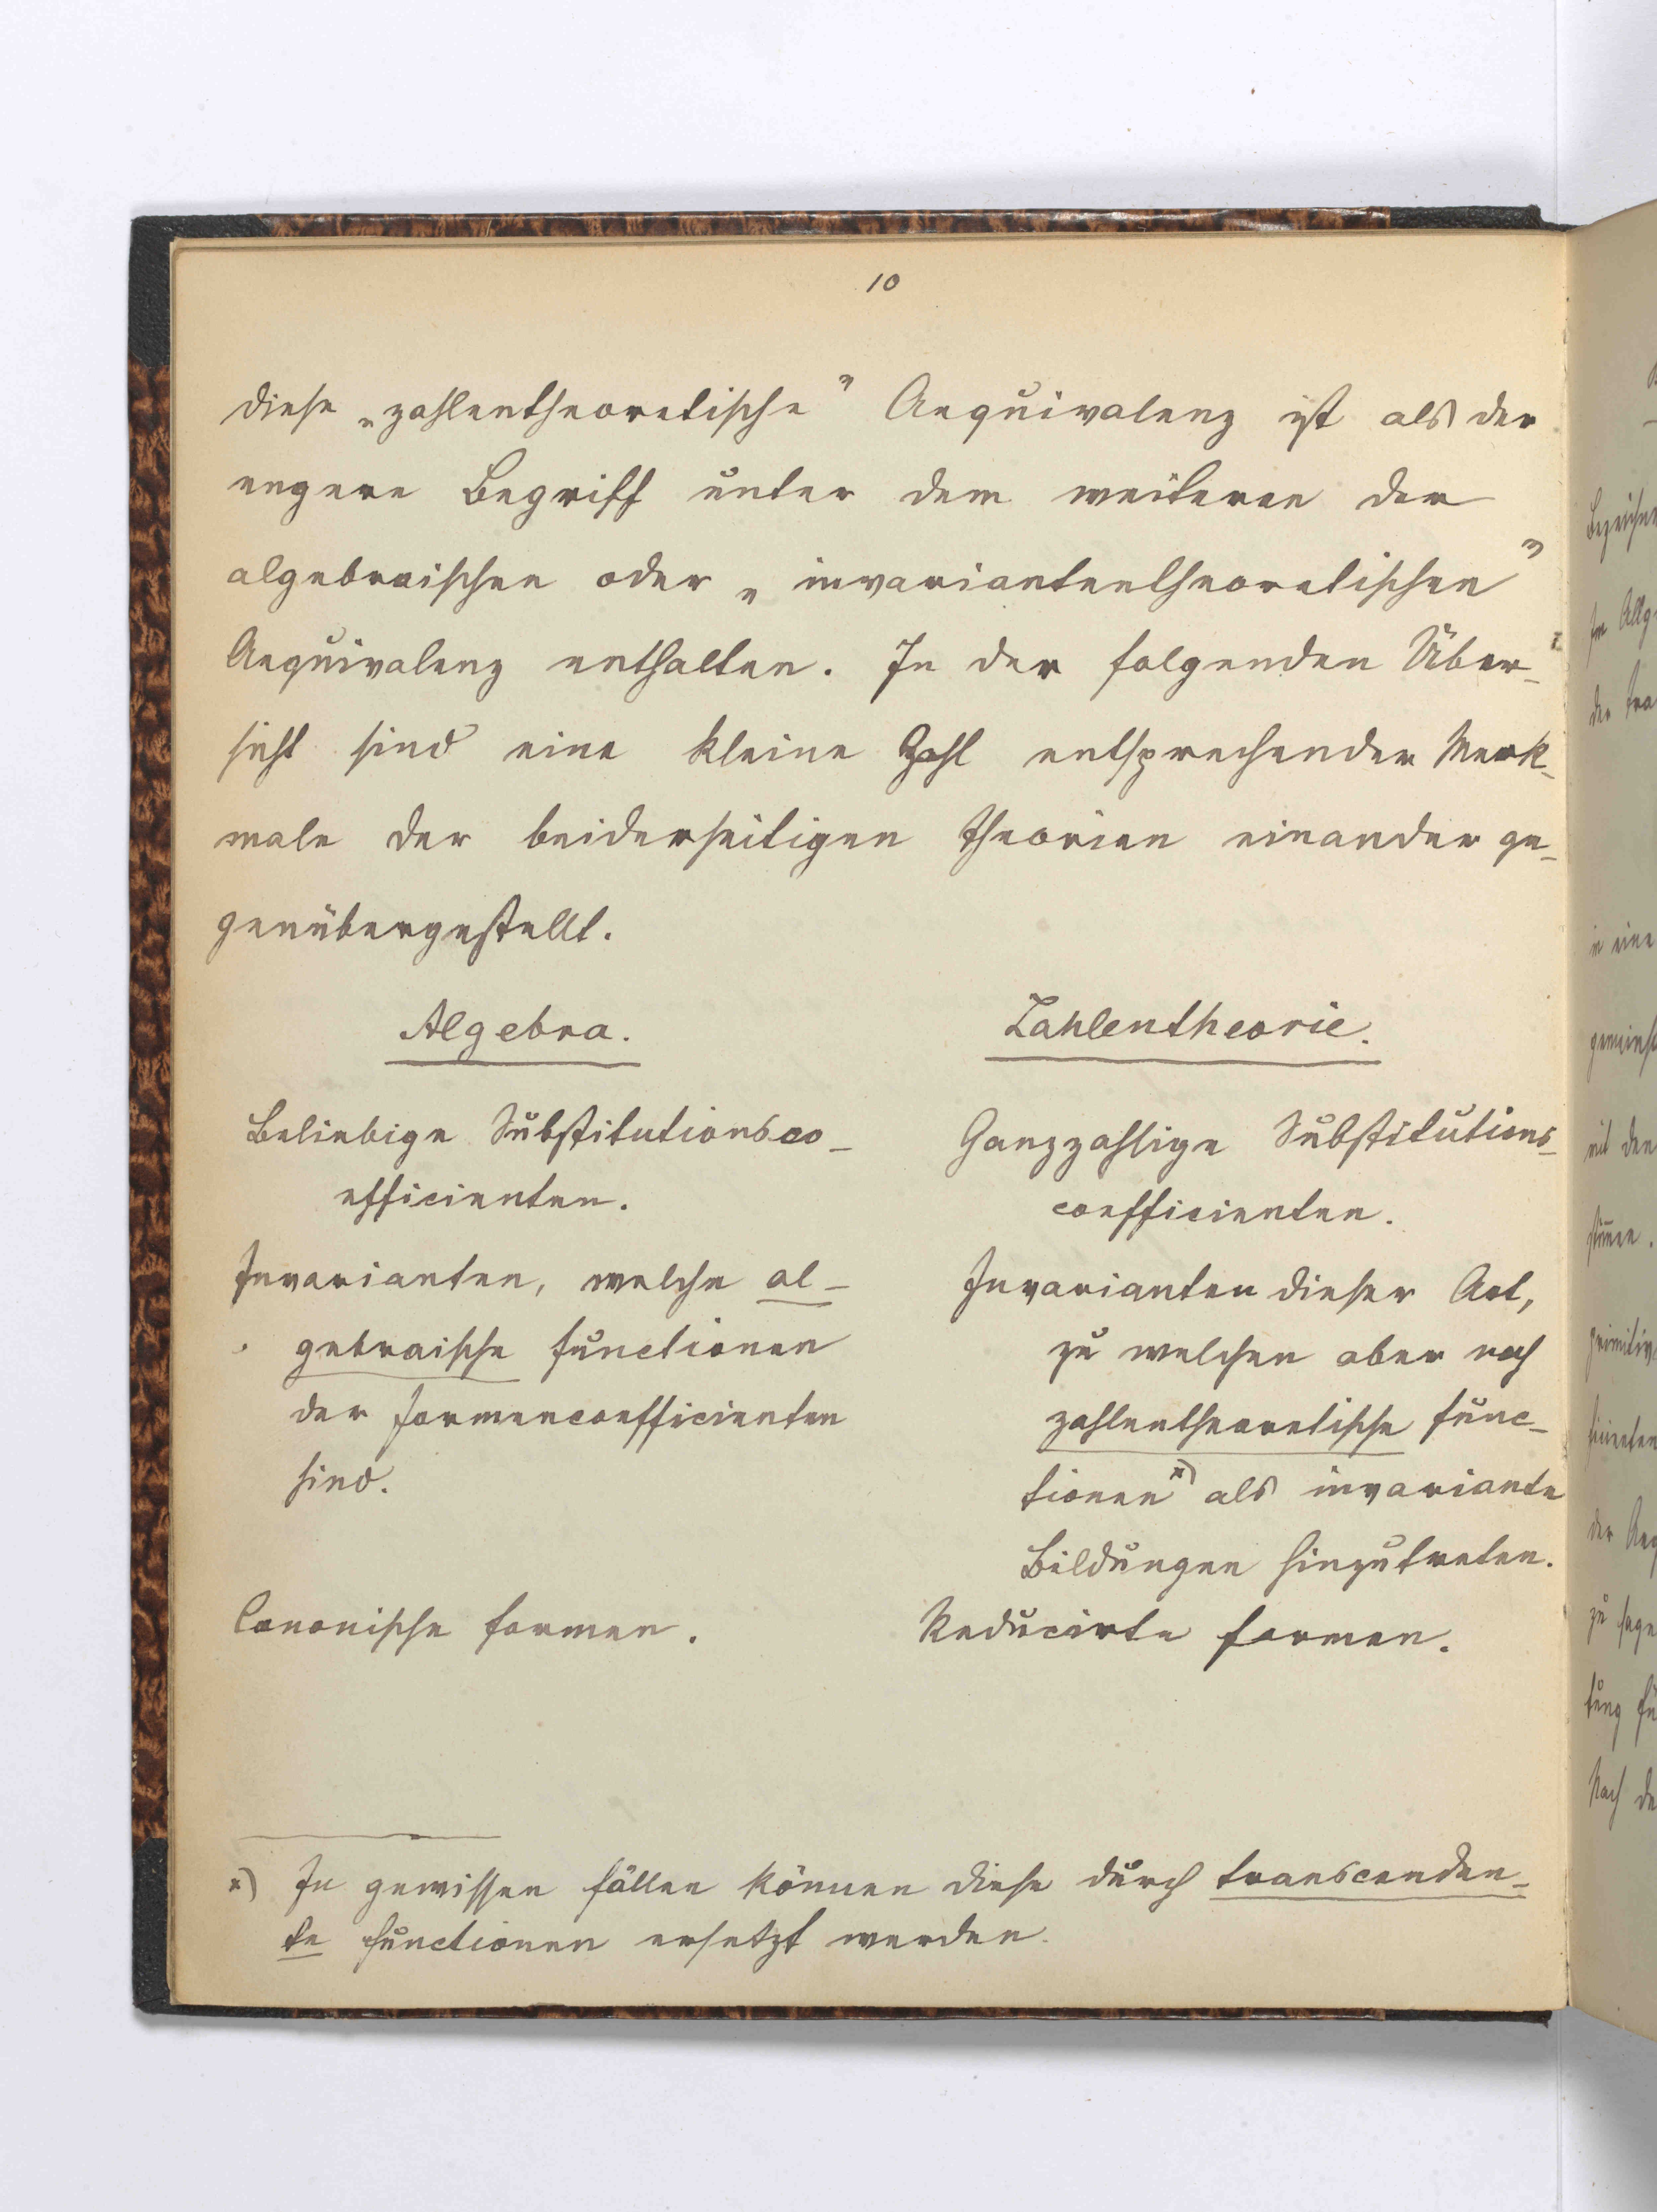 10
diese „zahlentheoretische" Aequivalenz ist als der
engere Begriff unter dem weiteren der
algebraischen oder „invariantentheoretischen"
Aequivalenz enthalten. In der folgenden Über-
sicht sind eine kleine Zahl entsprechender Merk-
male der beiderseitigen Theorien einander ge-
genübergestellt.
Algebra.
Beliebige Substitutionsco-
efficienten.
Invarianten, welche al-
gebraische Functionen
der Formencoefficienten
sind.
Canonische Formen.
Zahlentheorie.
Ganzzahlige Substitutions-
coefficienten.
Invarianten dieser Art,
zu welchen aber noch
zahlentheoretische Func-
tionen *) als invariante
Bildungen hinzutreten.
Reducirte Formen.
*) In gewissen Fällen können diese durch transcenden-
te Functionen ersetzt werden.